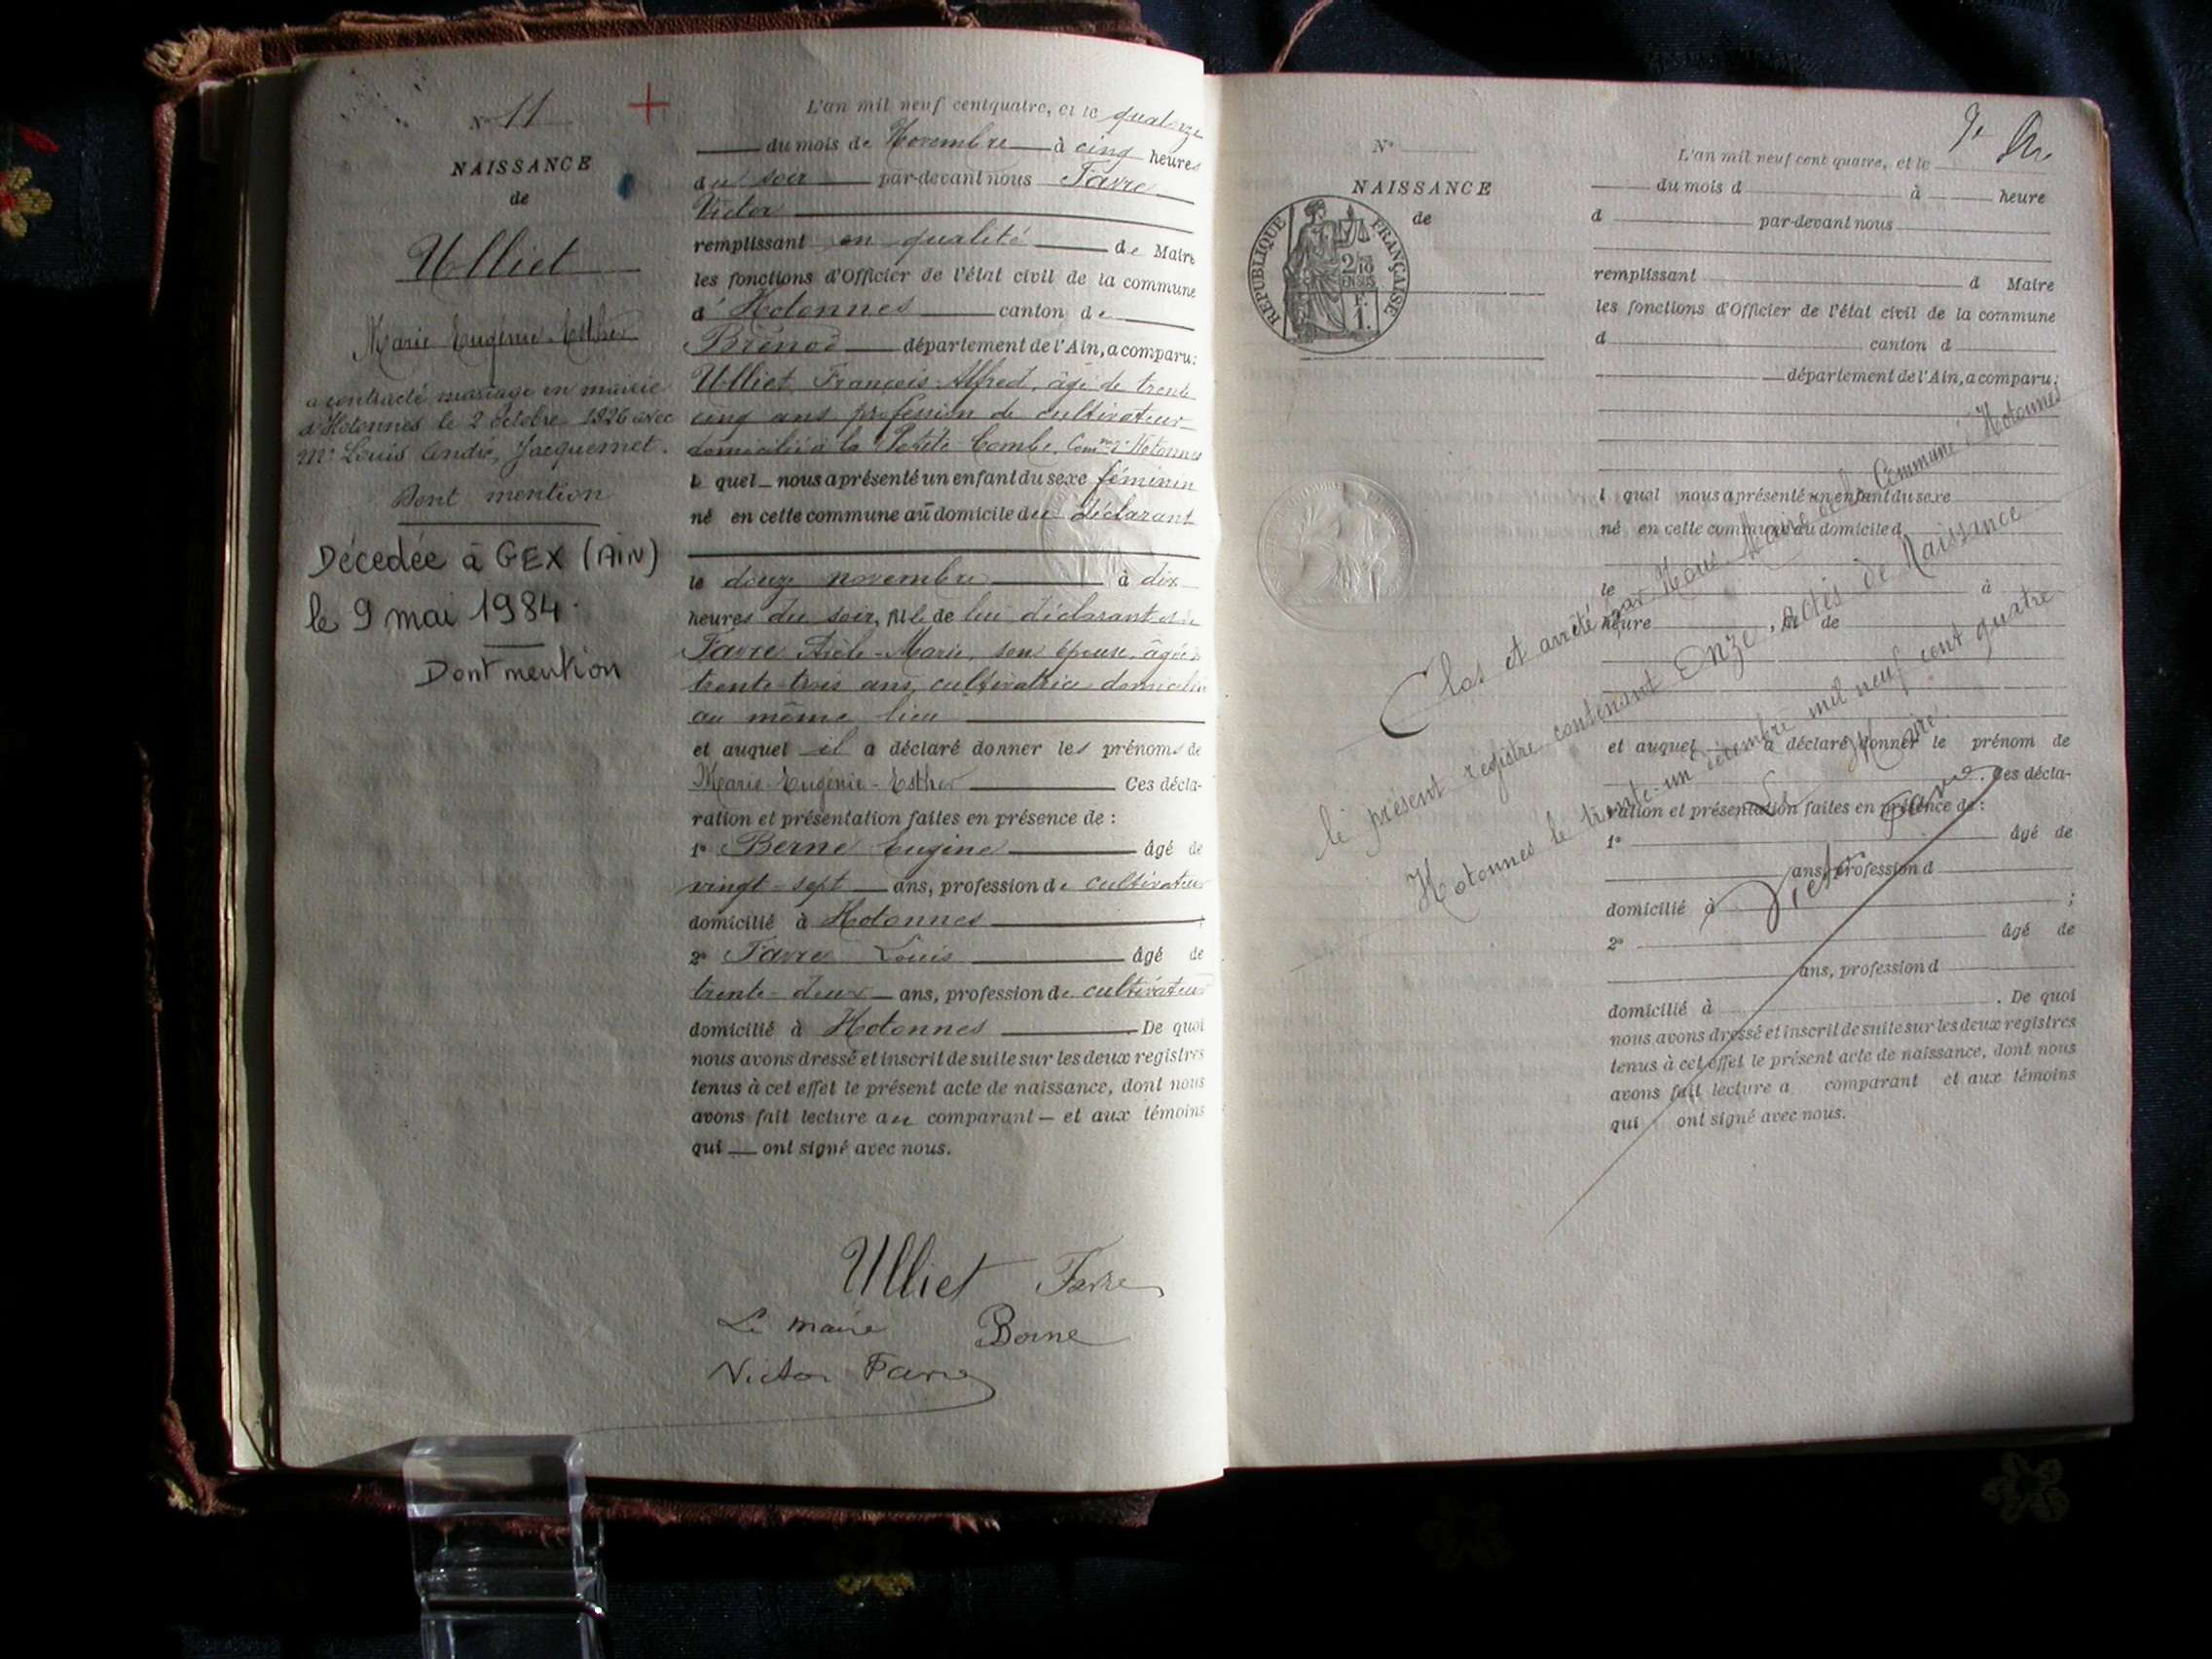 N° 11
NAISSANCE
de
Ulliet
Marie Eugénie Esther
a contracté mariage en mairie
d'Hotonnes le 2 octobre 1926 avec
Mr Louis André, Jacquemet.
Dont mention
Décedée à GEX (AIN)
le 9 mai 1984.
Dont mention
L'an mil neuf cent quatre, et le quatorze
du mois de Novembre à cinq heures
du soir par-devant nous Favre
Victor
remplissant en qualité de Maire
les fonctions d'Officier de l'état civil de la commune
d'Hotonnes canton de
Brénod département de l'Ain, a comparu:
Ulliet François Alfred, âgé de trente
cinq ans profession de cultivateur
domicilié à la Petite Combe, Comne d'Hotonnes
le quel nous a présenté un enfant du sexe féminin
né en cette commune au domicile du déclarant
le douze novembre à dix
heures du soir, fille de lui déclarant et de
Favre Adèle-Marie, son épouse, âgée de
trente-trois ans, cultivatrice domiciliée
au même lieu
et auquel il a déclaré donner les prénoms de
Marie-Eugénie-Esther Ces décla-
ration et présentation faites en présence de :
1° Berne Eugène âgé de
vingt-sept ans, profession de cultivateur
domicilié à Hotonnes ;
2° Favre Louis âgé de
trente-deux ans, profession de cultivateur
domicilié à Hotonnes De quoi
nous avons dressé et inscrit de suite sur les deux registres
tenus à cet effet le présent acte de naissance, dont nous
avons fait lecture au comparant — et aux témoins
qui — ont signé avec nous.
Ulliet Favre
Le maire Berne
Victor Favre
N°
NAISSANCE
de
RÉPUBLIQUE FRANÇAISE
2/10
EN SUS
F.
1.
L'an mil neuf cent quatre, et le
du mois d à heure
d par-devant nous
remplissant d Maire
les fonctions d'Officier de l'état civil de la commune
d canton d
département de l'Ain, a comparu:
l quel nous a présenté un enfant du sexe
né en cette commune au domicile d
le à
heure fil de
et auquel a déclaré donner le prénom de
. Ces décla-
ration et présentation faites en présence de :
1° âgé de
ans, profession d
domicilié à ;
2° âgé de
ans, profession d
domicilié à . De quoi
nous avons dressé et inscrit de suite sur les deux registres
tenus à cet effet le présent acte de naissance, dont nous
avons fait lecture a comparant et aux témoins
qui ont signé avec nous.
Clos et arrêté par Nous Maire de la Commune d'Hotonnes
le présent registre contenant Onze actes de Naissance
Hotonnes le trente-un décembre mil neuf cent quatre
Le Maire
Victor Favre